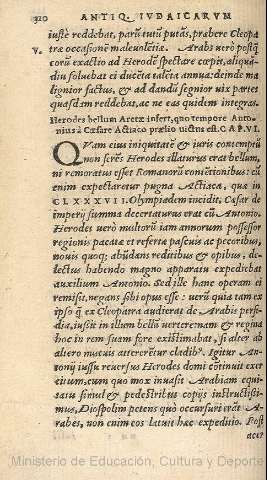 320 ANTIQ. IVDAICARVM
iustè reddebat, parū tutū putās, præbere Cleopa
V. træ occasionē maleuolētiæ. Arabs uerò postꝗ̃
corū exactio ad Herodē spectare cœpit, aliquā-
diu soluebat ei ducēta talēta annua: deinde ma
lignior factus, & ad dandū segnior uix partes
quasdam reddebat, ac ne eas quidem integras.
Herodes bellum Aretæ infert, quo tempore Anto-
nius à Cæsare Actiaco prælio uictus est. CAP. VI.
QVam eius iniquitatē & iuris contemptū
non ferēs Herodes illaturus erat bellum,
ni remoratus esset Romanorū cōtentionibus: eū
enim expectaretur pugna Actiaca, quæ in
CLXXXVII. Olympiadem incidit, Cæsar de
imperij summa decertaturus erat cū Antonio.
Herodes uerò multorū iam annorum possessor
regionis pacatæ et refertæ pascuis ac pecoribus,
nouis quoq; abūdans reditibus & opibus, di-
lectus habendo magno apparatu expediebat
auxilium Antonio. Sed ille hanc operam ei
remisit, negans sibi opus esse: uerū quia tam ex
ipso ꝗ̃ ex Cleopatra audierat de Arabis perfi-
dia, iußit in illum bellū uerterenam & regina
hoc in rem suam fore existimabat, si alter ab
altero mutuis attereretur cladibꝰ. Igitur An-
tonij iussu reuersus Herodes domi cōtinuit exer
citum, cum quo mox inuasit Arabiam equi-
tatu simul & pedestribus copijs instructißi-
mus, Diospolim petens quò occursuri erāt A-
rabes, non enim eos latuit hæc expeditio. Post
acer
Ministerio de Educación, Cultura y Deporte